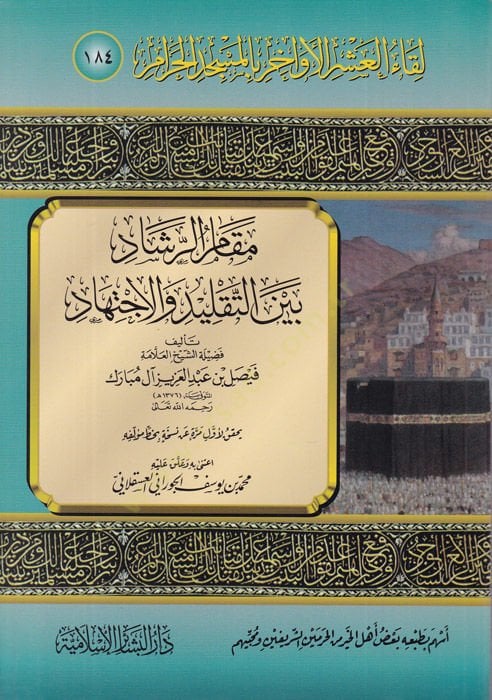 لقاء العشر الأواخر بالمسجد الحرام
١٨٤
مقام الرشاد
بين التقليد والاجتهاد
تأليف
فضيلة الشيخ العلامة
فيصل بن عبد العزيز آل مبارك
المتوفى سنة (١٣٧٦ هـ)
رحمه الله تعالى
يحقق لأول مرة عن نسخة بخط مؤلفه
اعتنى به وعلق عليه
محمد بن يوسف الجوراني العسقلاني
أسهم بطبعه بعض أهل الخير من الحرمين الشريفين ومحبيهم
دار البشائر الإسلامية